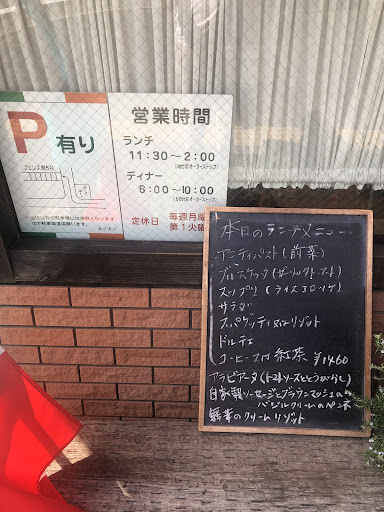 P
有り
フェンス側5台
営業時間
ランチ
11:30～2:00
ディナー
6:00～10:00
定休日
毎週月曜
第1火曜
本日のランチメニュー
アンティパスト(前菜)
ブルスケッタ(ガーリックトースト)
スップリ(ライスコロッケ)
サラダ
スパゲッティ又はリゾット
ドルチェ
コーヒー又は紅茶 ¥1460
アラビアータ(トマトソースととうがらし)
自家製ソーセージとブラウンマッシュの
バジルクリームのペンネ
のクリームリゾット